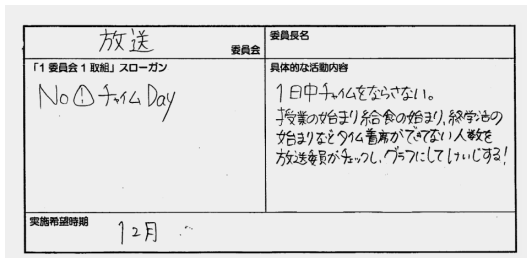 放送 委員会
委員長名
「1委員会1取組」スローガン
No チャイム Day
具体的な活動内容
1日中チャイムをならさない。
授業の始まり、給食の始まり、終学活の
始まりなどタイム着席ができてない人数を
放送委員がチェックし、グラフにしてけいじする!
実施希望時期
12月